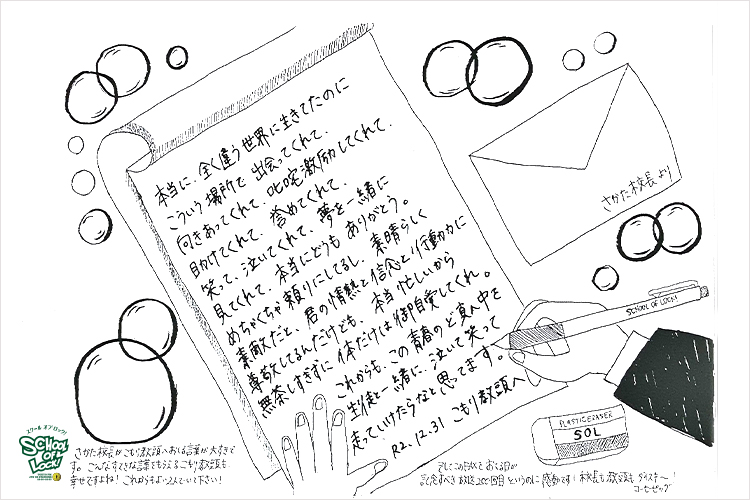 本当に、全く違う世界に生きてたのに
こういう場所で出会ってくれて、
向きあってくれて、叱咤激励してくれて、
助けてくれて、誉めてくれて、
笑って、泣いてくれて、夢を一緒に
見てくれて、本当にどうもありがとう。
めちゃくちゃ頼りにしてるし、素晴らしく
素敵だと、君の情熱と信念と行動力に
尊敬してるんだけども、本当忙しいから
無茶しすぎずに体だけは御自愛してくれ。
これからも、この青春のど真ん中を
生徒と一緒に、泣いて笑って
走っていけたらなと思てます。
R2.12.31 こもり教頭へ
さかた校長より
SCHOOL OF LOCK!
PLASTIC ERASER
SOL
スクール オブ ロック!
SCHOOL
OF
LOCK!
さかた校長がこもり教頭へおくる言葉が大すきで
す。こんなすてきな言葉でもらえるこもり教頭も
幸せですよね!これからも2人でいて下さい!
そしてこの日がく おくる日が
記念すべき放送200回目というのに感動です!校長も教頭もダイスキー!
コーヒーゼップ